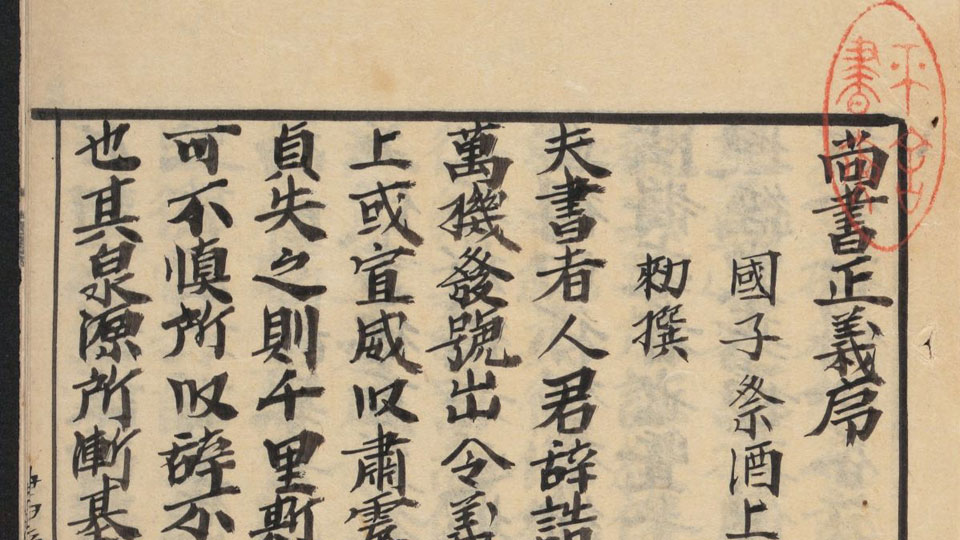 尚書正義序
國子祭酒上
勑撰
夫書者人君辞誥
萬機發號出令義
上或宣威以肅震
貞失之則千里斯
可不慎所以辞不
也其泉源所漸基